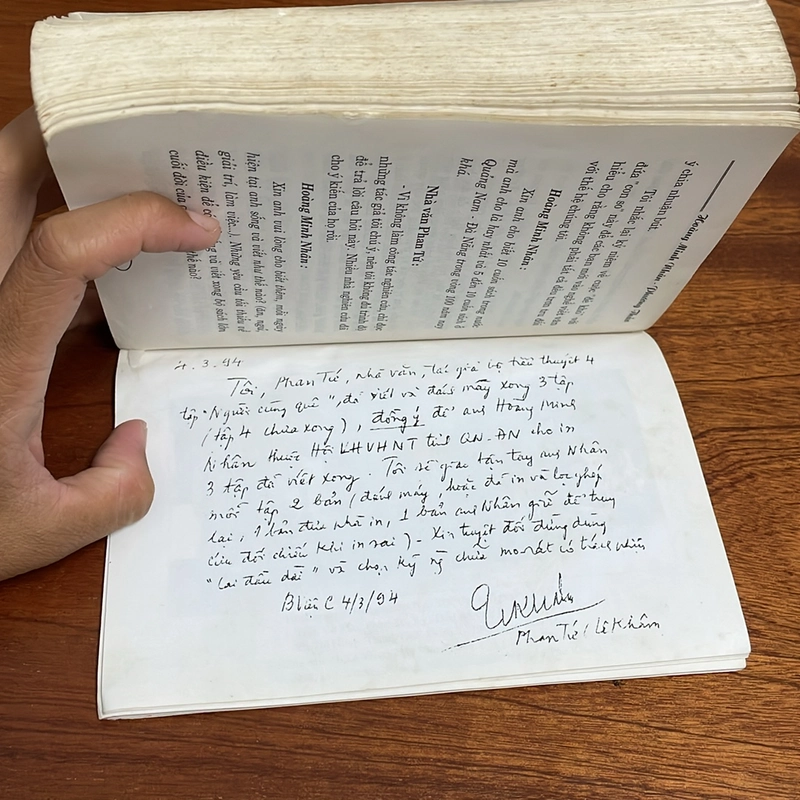 Hoàng Minh Nhân
ý chia nhuận bút.
Tôi nhắc lại kỷ niệm về cuộc "đẻ khó" và
đứa "con so" này để các bạn mới vào nghề viết văn
hiểu cho rằng không phải tất cả đều trơn tru đối
với thế hệ chúng tôi.
Hoàng Minh Nhân :
Xin anh cho biết 10 cuốn sách trong nước
mà anh cho là hay nhất và 5 đến 10 cuốn sách ở
Quảng Nam - Đà Nẵng trong vòng 100 năm nay
khá.
Nhà văn Phan Tứ :
- Vì không làm công tác nghiên cứu, chỉ đọc
những tác giả tôi chú ý, nên tôi không đủ trình độ
để trả lời câu hỏi này. Nhiều nhà nghiên cứu đã
cho ý kiến của họ rồi.
Hoàng Minh Nhân :
Xin anh vui lòng cho biết thêm, mỗi ngày
hiện tại anh sống và viết như thế nào? (ăn, ngủ,
giải trí, làm việc...). Những yêu cầu tối thiểu về
điều kiện để có sống và viết xong bộ sách lớn
cuối đời của thế nào?
4.3.94
Tôi, Phan Tứ, nhà văn, tác giả bộ tiểu thuyết 4
tập "Người cùng quê", đã viết và đánh máy xong 3 tập
(tập 4 chưa xong), đồng ý để anh Hoàng Minh
Nhân thuộc Hội VHNT tỉnh QN-ĐN cho in
3 tập đã viết xong. Tôi sẽ giao tận tay anh Nhân
mỗi tập 2 bản (đánh máy, hoặc đã in và lọc ghép
lại, 1 bản đưa nhà in, 1 bản anh Nhân giữ để truy
cứu đối chiếu khi in sai). Xin tuyệt đối đừng dùng
"cai đầu dài" và chọn kỹ ng chữa mo-rát có trách nhiệm
BViện C 4/3/94
Phan Tứ / Lê Khâm